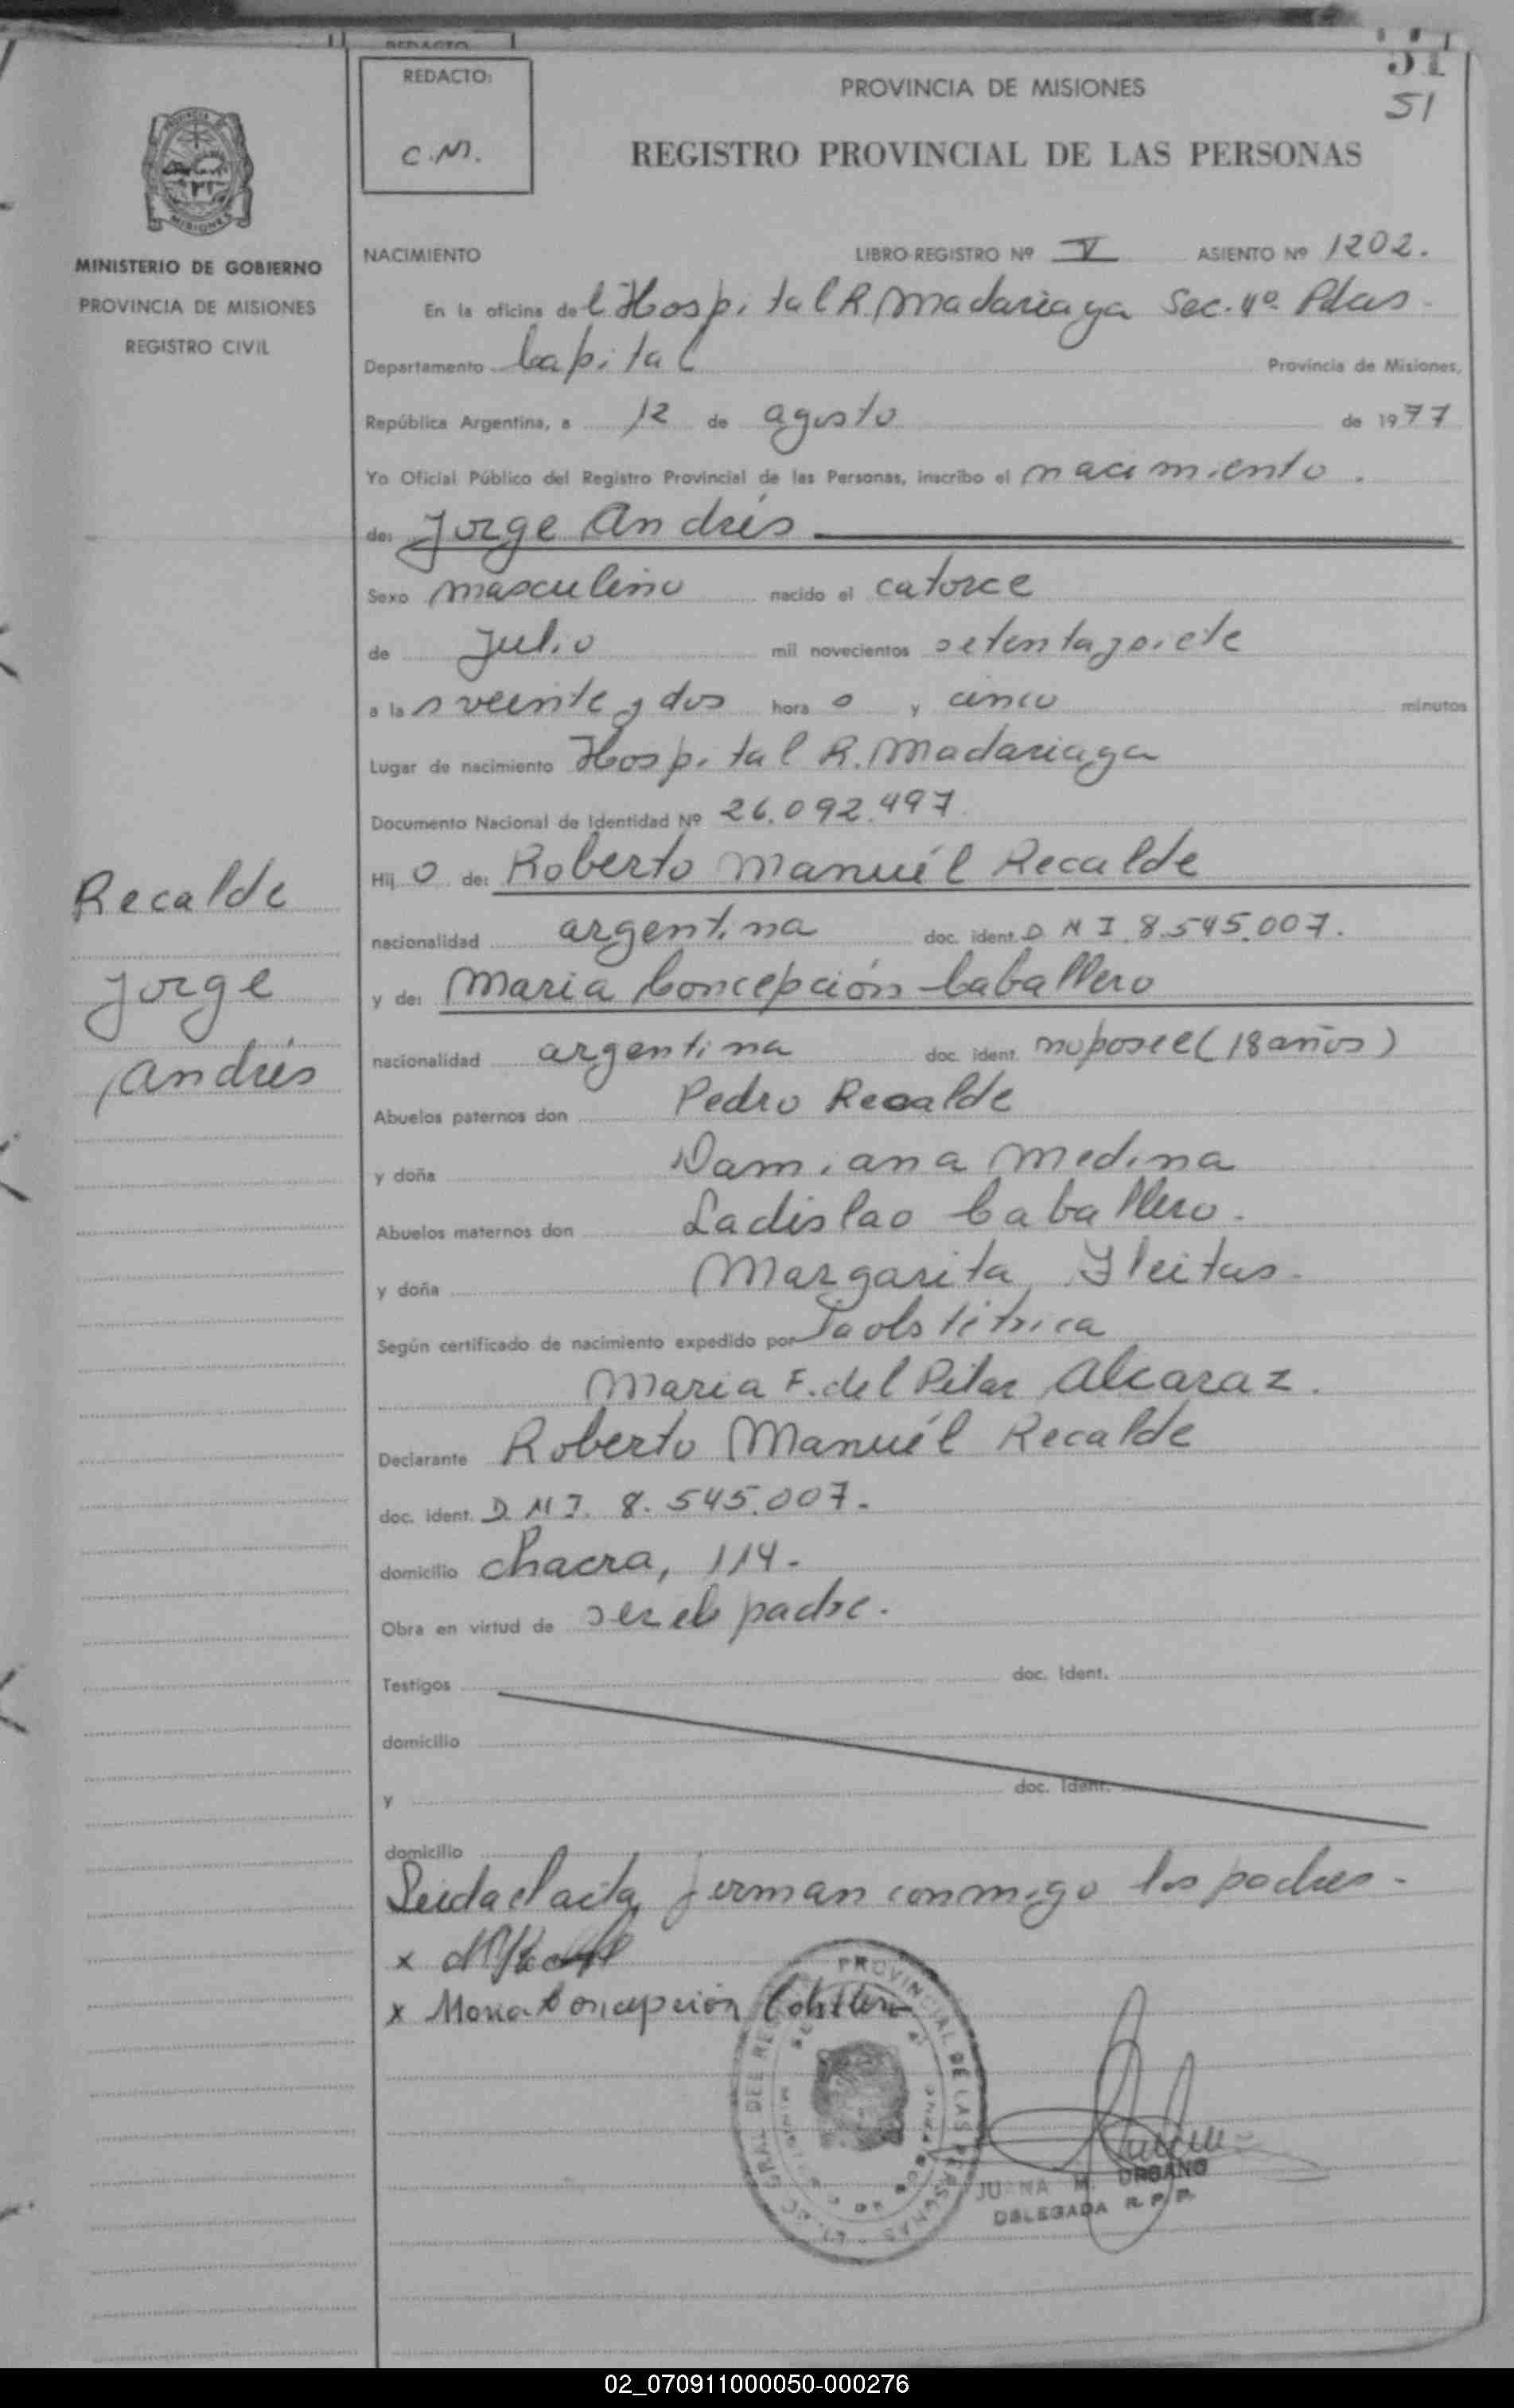 REDACTO:
C.M.
PROVINCIA DE MISIONES
51
51
REGISTRO PROVINCIAL DE LAS PERSONAS
MISIONES
MINISTERIO DE GOBIERNO
PROVINCIA DE MISIONES
REGISTRO CIVIL
NACIMIENTO LIBRO-REGISTRO Nº V ASIENTO Nº 1202.
En la oficina del Hospital R. Madariaga Sec. 4º Pdas -
Departamento Capital Provincia de Misiones,
República Argentina, a 12 de agosto de 1977
Yo Oficial Público del Registro Provincial de las Personas, inscribo el nacimiento.
de: Jorge Andrés
Sexo masculino nacido el catorce
de Julio mil novecientos setenta y siete
a las veinte y dos hora s y cinco minutos
Lugar de nacimiento Hospital R. Madariaga
Documento Nacional de Identidad Nº 26.092.497
Hij o de: Roberto Manuél Recalde
nacionalidad argentina doc. ident. D N I 8.545.007.
y de: Maria Concepción Caballero
nacionalidad argentina doc. ident. no posee (18 años)
Abuelos paternos don Pedro Recalde
y doña Damiana Medina
Abuelos maternos don Ladislao Caballero.
y doña Margarita Fleitas.
Según certificado de nacimiento expedido por La obstétrica
Maria F. del Pilar Alcaraz.
Declarante Roberto Manuél Recalde
doc. ident. D N I. 8.545.007.
domicilio Chacra, 114-
Obra en virtud de ser el padre.
Testigos doc. Ident.
domicilio
y doc. Ident.
domicilio
Leida el acta, firman conmigo los padres -
x
x Maria Concepción Caballero
Recalde
Jorge
Andrés
PROVINCIAL DE LAS PERSONAS
JUANA M. ORGANO
DELEGADA R. P. P.
02_070911000050-000276